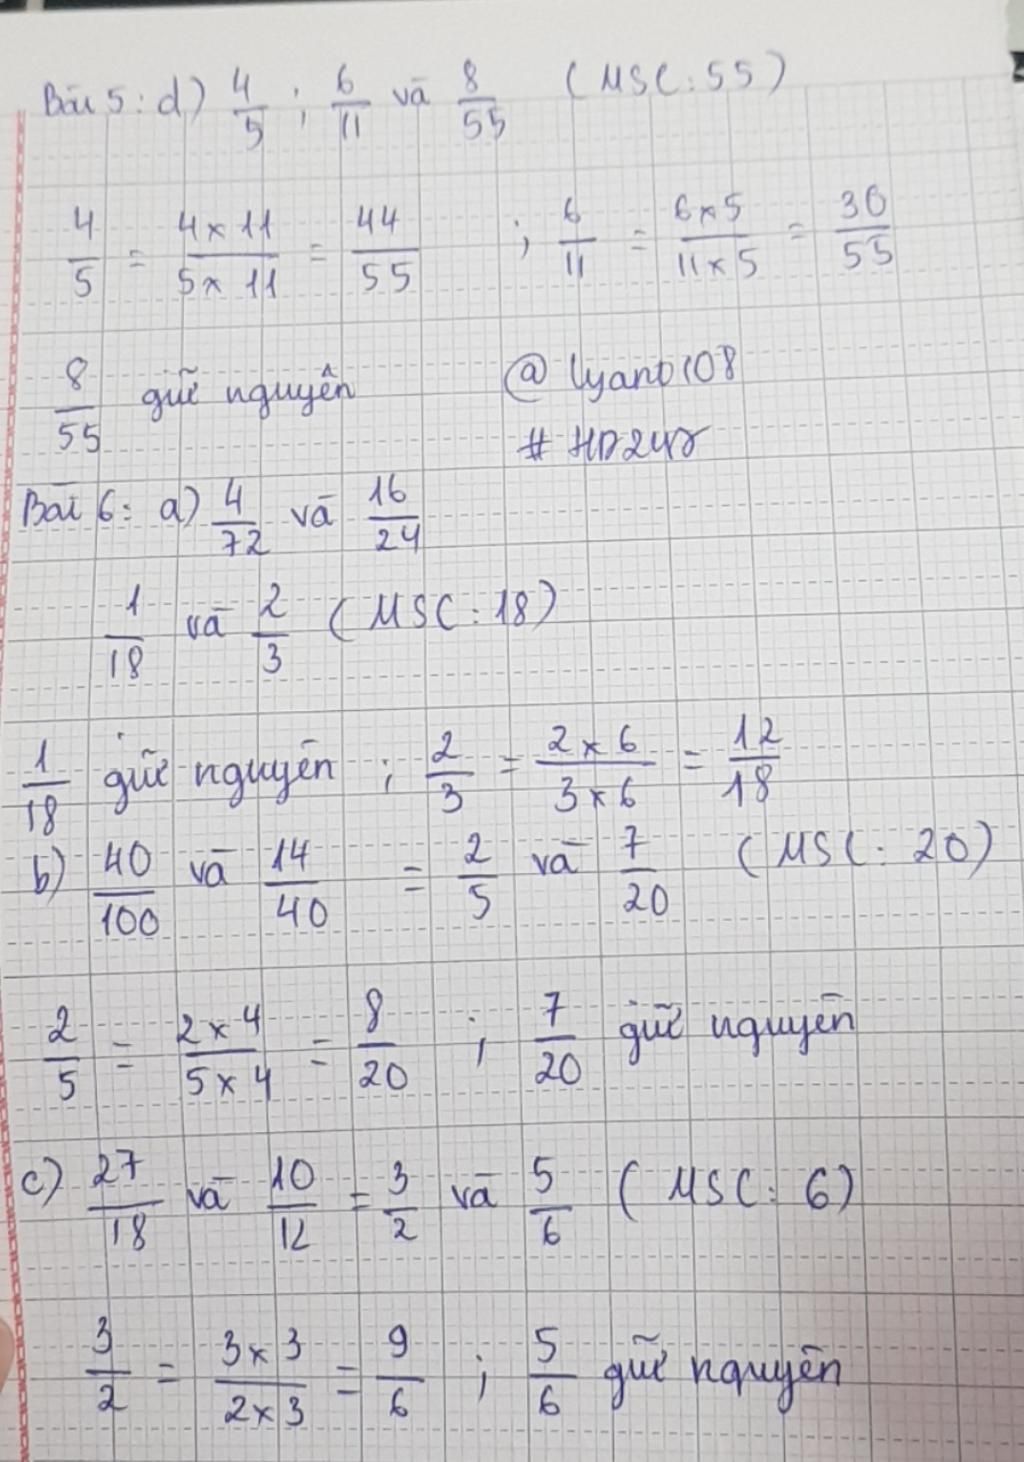 Bài 5: d) 4/5 ; 6/11 và 8/55 (MSC: 55)
4/5 = 4x11/5x11 = 44/55 ; 6/11 = 6x5/11x5 = 30/55
8/55 giữ nguyên @lyanb108
# HD247
Bài 6: a) 4/72 và 16/24
1/18 và 2/3 (MSC: 18)
1/18 giữ nguyên ; 2/3 = 2x6/3x6 = 12/18
b) 40/100 và 14/40 = 2/5 và 7/20 (MSC: 20)
2/5 = 2x4/5x4 = 8/20 ; 7/20 giữ nguyên
c) 27/18 và 10/12 = 3/2 và 5/6 (MSC: 6)
3/2 = 3x3/2x3 = 9/6 ; 5/6 giữ nguyên